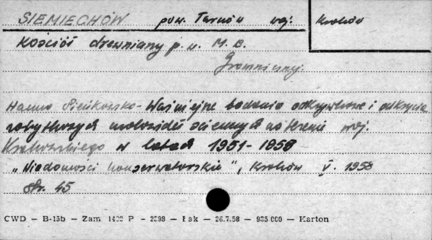 SIEMIECHÓW pow. Tarnów woj. Kraków
Kościół drewniany p. w. M. B.
Gromnicznej
Hanna Pieńkowska - Ważniejsze badania odkrywkowe i odkrycia
zabytkowych malowideł ściennych na terenie woj.
Krakowskiego w latach 1951 - 1956
„Wiadomości Konserwatorskie”, Kraków V. 1956
str. 45
CWD — B-15b — Zam P — — Łsk — 26.7.58 — — Karton